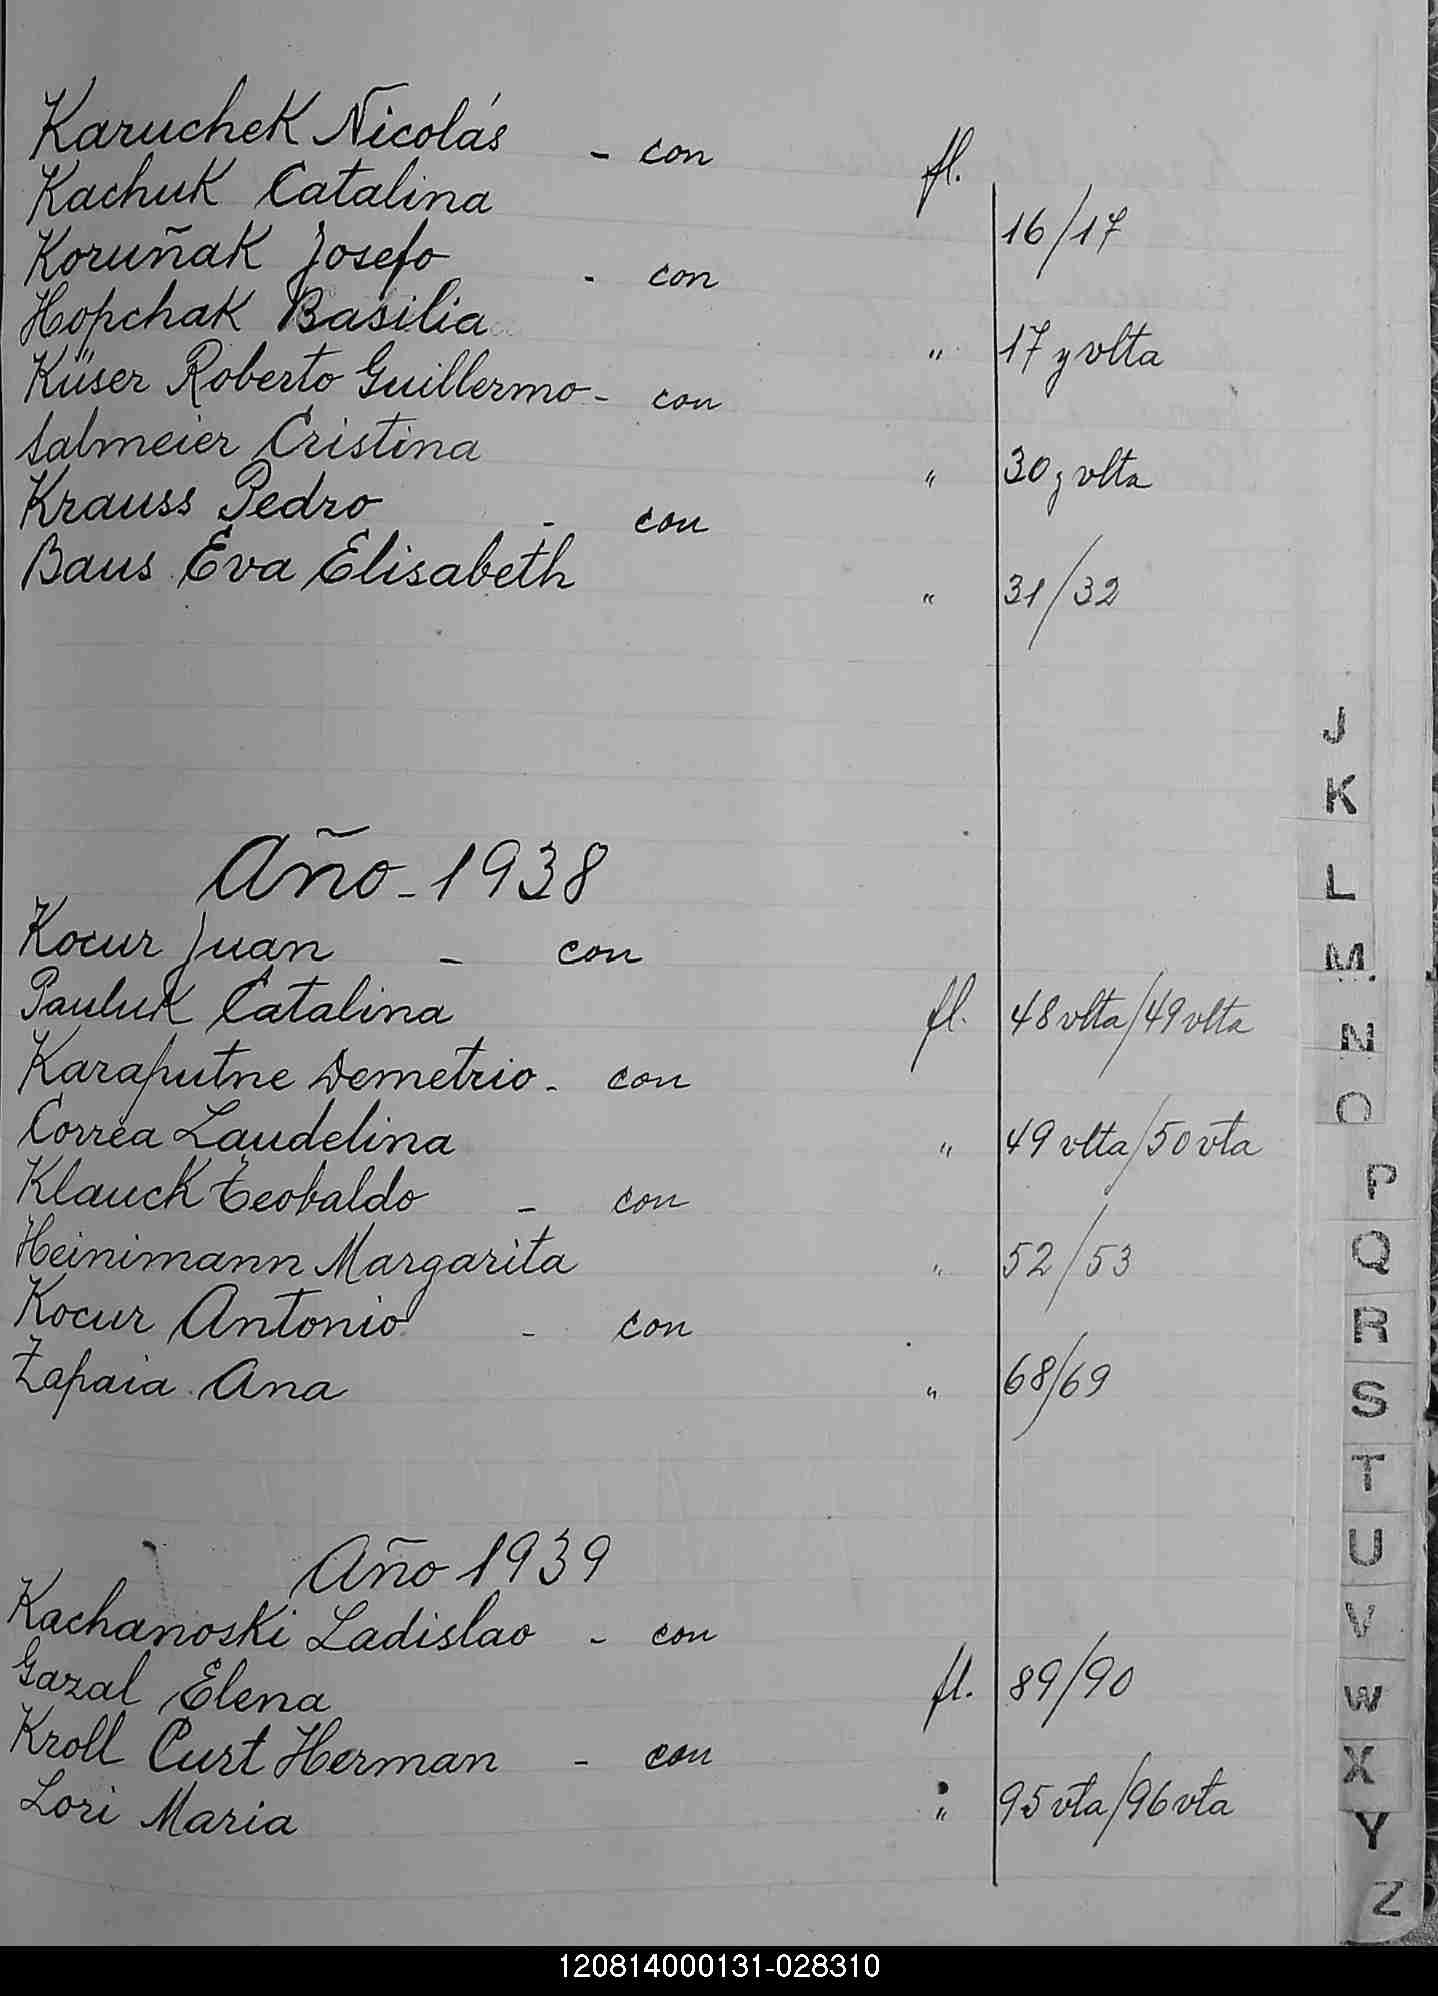 Karuchek Nicolás - con fl.
Kachuk Catalina 16/17
Koruñak Josefo - con
Hopchak Basilia " 17 y vlta
Küser Roberto Guillermo - con
Salmeier Cristina " 30 y vlta
Krauss Pedro - con
Baus Eva Elisabeth " 31/32
Año - 1938
Kocur Juan - con
Pauluk Catalina fl. 48 vlta/49 vlta
Karaputne Demetrio - con
Correa Laudelina " 49 vlta/50 vta
Klauck Teobaldo - con
Heinimann Margarita " 52/53
Kocur Antonio - con
Zapaia Ana " 68/69
Año 1939
Kachanoski Ladislao - con
Gazal Elena fl. 89/90
Kroll Curt Herman - con
Lori Maria " 95 vta/96 vta
J
K
L
M
N
O
P
Q
R
S
T
U
V
W
X
Y
Z
120814000131-028310